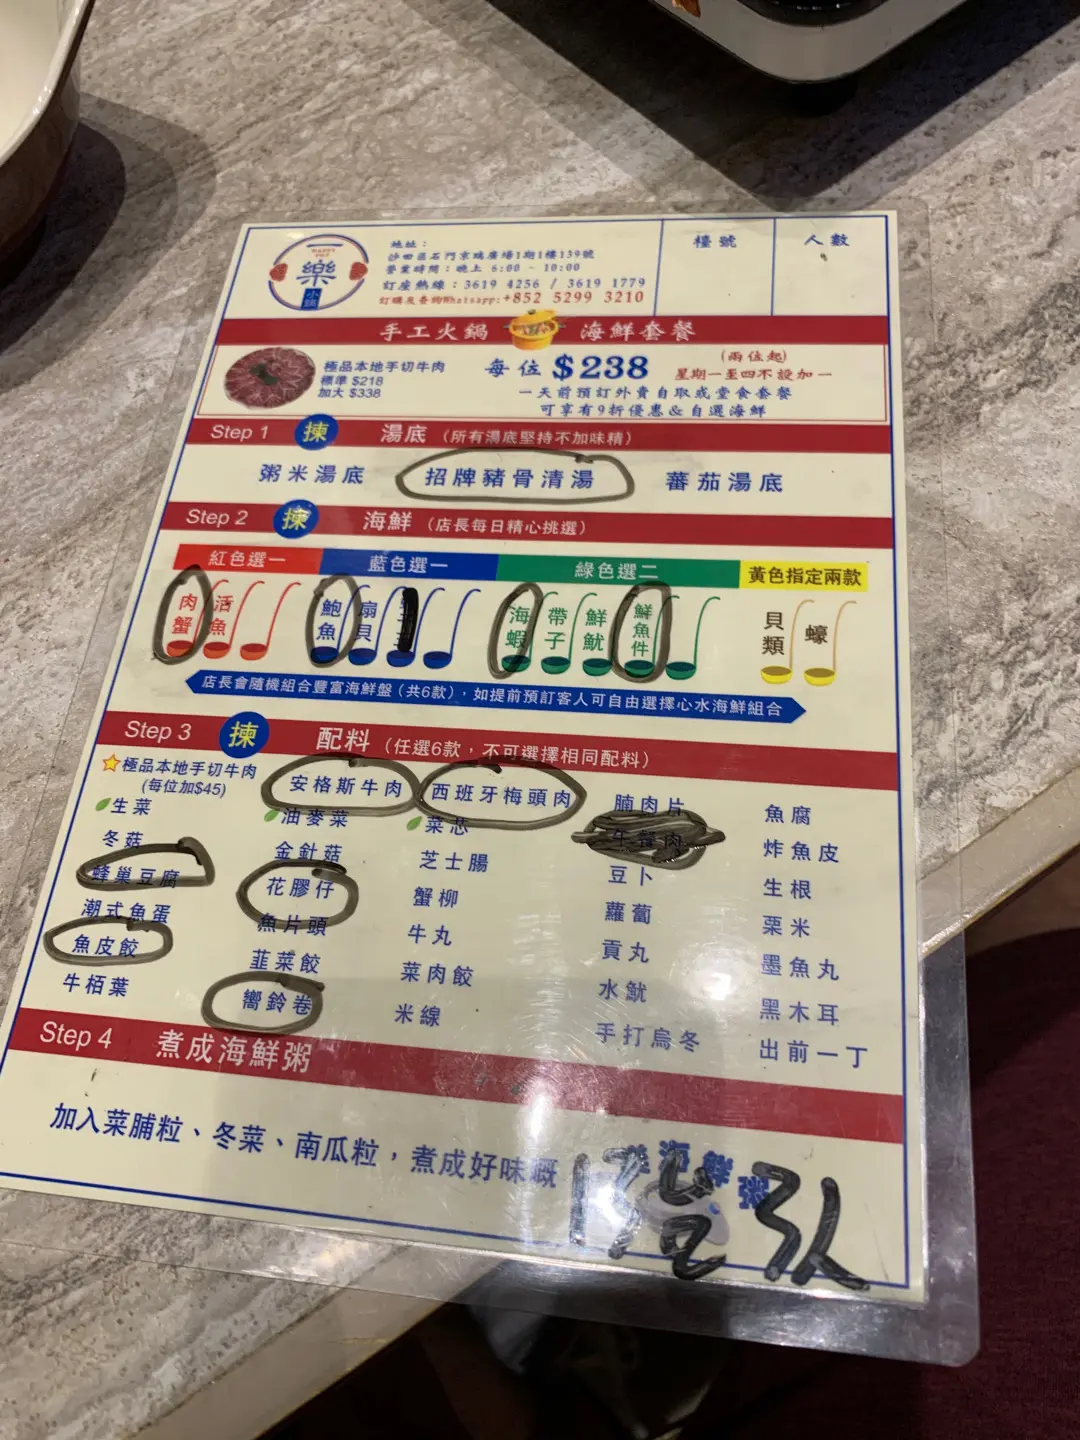 HAPPY POT
一樂
小鍋
地址：
沙田區石門京瑞廣場1期1樓139號
營業時間：晚上 6:00 - 10:00
訂座熱線：3619 4256 / 3619 1779
訂購及查詢Whatsapp:+852 5299 3210
檯號
人數
手工火鍋 海鮮套餐
極品本地手切牛肉
標準 $218
加大 $338
每位 $238
(兩位起)
星期一至四不設加一
一天前預訂外賣自取或堂食套餐
可享有9折優惠&自選海鮮
Step 1 揀 湯底 (所有湯底堅持不加味精)
粥米湯底 招牌豬骨清湯 蕃茄湯底
Step 2 揀 海鮮 (店長每日精心挑選)
紅色選一 藍色選一 綠色選二 黃色指定兩款
肉蟹 活魚 鮑魚 扇貝 海蝦 帶子 鮮魷 鮮魚件 貝類 蠔
店長會隨機組合豐富海鮮盤 (共6款)，如提前預訂客人可自由選擇心水海鮮組合
Step 3 揀 配料 (任選6款，不可選擇相同配料)
極品本地手切牛肉 安格斯牛肉 西班牙梅頭肉 腩肉片 魚腐
(每位加$45)
生菜 油麥菜 菜芯 炸魚皮
冬菇 金針菇 芝士腸 豆卜 生根
蜂巢豆腐 花膠仔 蟹柳 蘿蔔 粟米
潮式魚蛋 魚片頭 牛丸 貢丸 墨魚丸
魚皮餃 韮菜餃 菜肉餃 水魷 黑木耳
牛栢葉 嚮鈴卷 米線 手打烏冬 出前一丁
Step 4 煮成海鮮粥
加入菜脯粒、冬菜、南瓜粒，煮成好味嘅
海鮮粥
3人